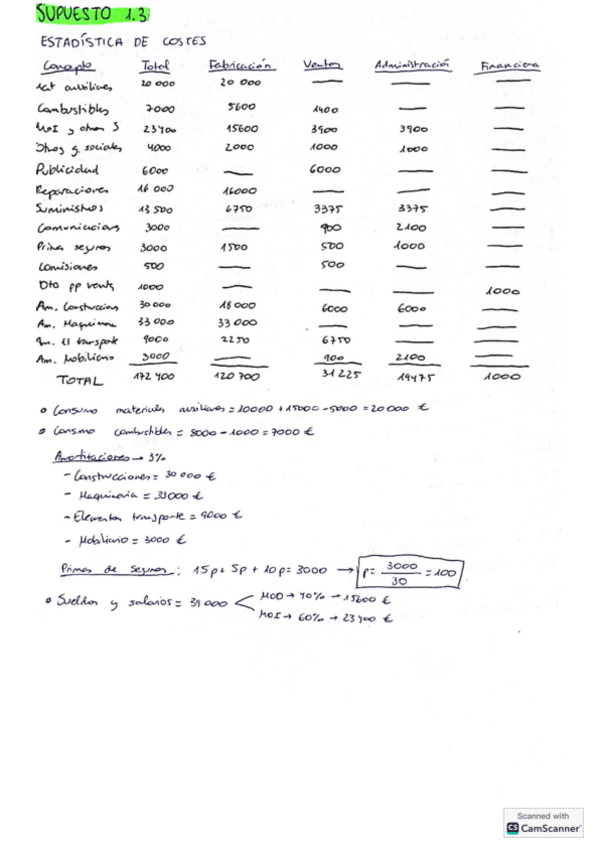 SUPUESTO 1.3
ESTADÍSTICA DE COSTES
Concepto Total Fabricación Ventas Administración Financiera
Mat auxiliares 20 000 20 000 — — —
Combustibles 7000 5600 1400 — —
MOI y otros S 23400 15600 3900 3900 —
Otros g. sociales 4000 2000 1000 1000 —
Publicidad 6000 — 6000 — —
Reparaciones 16 000 16000 — — —
Suministros 13 500 6750 3375 3375 —
Comunicaciones 3000 — 900 2100 —
Primas seguros 3000 1500 500 1000 —
Comisiones 500 — 500 — —
Dto pp ventas 1000 — — — 1000
Am. Construccion 30 000 18 000 6000 6000 —
Am. Maquinaria 33 000 33 000 — — —
Am. El transporte 9000 2250 6750 — —
Am. Mobiliario 3000 — 900 2100 —
TOTAL 172 400 120 700 31 225 19475 1000
Consumo materiales auxiliares = 10000 + 15000 - 5000 = 20 000 €
Consumo combustibles = 8000 - 1000 = 7000 €
Amortizaciones → 3%
- Construcciones = 30 000 €
- Maquinaria = 33000 €
- Elementos transporte = 9000 €
- Mobiliario = 3000 €
Primas de seguros: 15p + 5p + 10p = 3000 → p = 3000 / 30 = 100
Sueldos y salarios = 39 000 MOD → 40% → 15600 €
MOI → 60% → 23 400 €
Scanned with
CS CamScanner